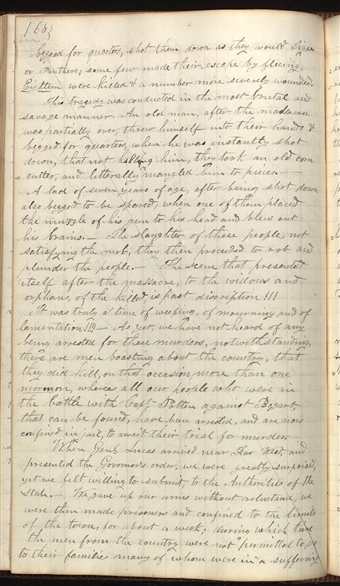 168
begged for quarters, shot them down as they would Tigers
or Panthers; some few made their escape by fleeing,
Eighteen were killed & a number more severely wounded.
This tragedy was conducted in the most brutal and
savage manner. An old man, after the massacre
was partially over, threw himself into their hands &
begged for quarters, when he was instantly shot
down, that not killing him, they took an old corn
cutter, and litterally mangled him to pieces.—
A lad of seven years of age, after being shot down
also begged to be spared, when one of them placed
the muzzle of his gun to his head and blew out
his brains.— The slaughter of these people, not
satisfying the mob, they then proceeded to rob and
plunder the people.— The scene that presented
itself after the massacre, to the widows and
orphans, of the killed, is past discription !!!
It was truly a time of weeping, of mourning, and of
lamentation !!!— As yet, we have not heard of any
being arrested for these murders, notwithstanding,
there are men boasting about the country, that
they did kill, on that occasion more than one
mormon, whereas all our people who were in
the battle with Capt Patten against Bogart,
that can be found, have been arrested, and are now
confined in jail, to await their trial for murder.—
When Genl Lucas arrived near Far West, and
presented the Governor's order, we were greatly surprised,
yet we felt willing to submit, to the Authorities of the
State. We gave up our arms without reluctance, we
were then made prisoners and confined to the limits
of the town, for about a week, during which time
the men from the country were not permitted to go
to their families, many of whom were in a suffering